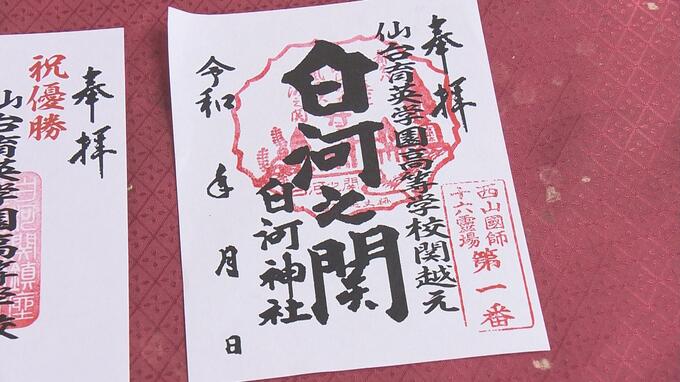 奉拝
仙台育英学園高等学校関越元
白河之関
白河神社
令和 年 月 日
西山國師
十六霊場
第一番
奉拝
祝優勝
仙台育英学園高等学校